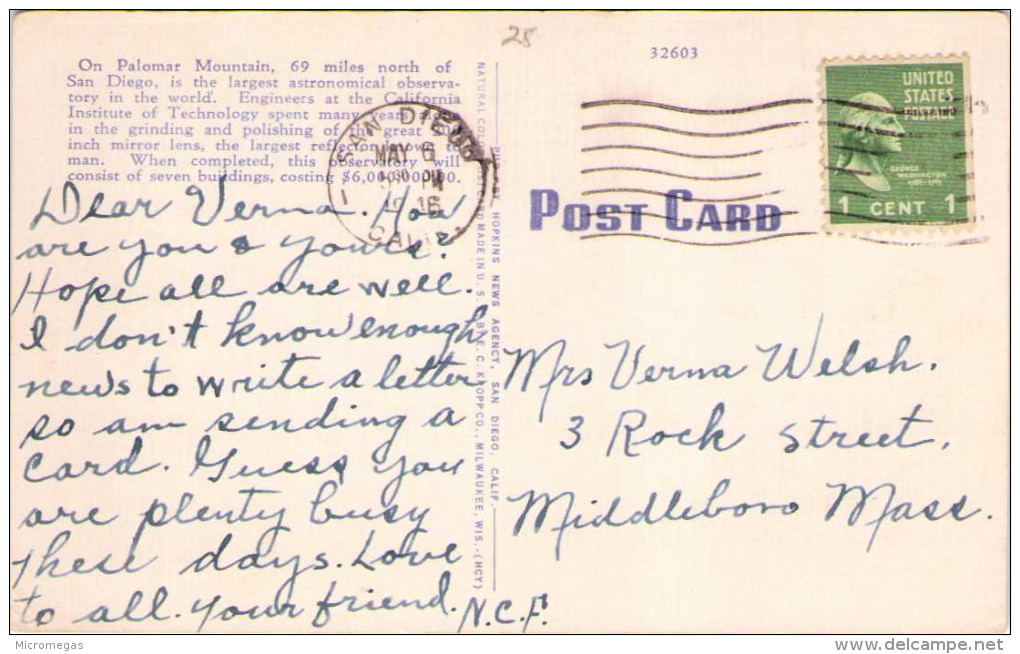 25
32603
On Palomar Mountain, 69 miles north of
San Diego, is the largest astronomical observa-
tory in the world. Engineers at the California
Institute of Technology spent many years
in the grinding and polishing of the great
inch mirror lens, the largest reflector known to
man. When completed, this observatory will
consist of seven buildings, costing $6,000,000.00.
SAN DIEGO
MAY 6
PM
CALIF.
1
UNITED
STATES
POSTAGE
GEORGE
WASHINGTON
1 CENT 1
POST CARD
Dear Verna. How
are you & yours?
Hope all are well.
I don't know enough
news to write a letter
so am sending a
card. Guess you
are plenty busy
these days. Love
to all. Your friend.
N.C.F.
Mrs Verna Welsh.
3 Rock Street.
Middleboro Mass.
HOPKINS NEWS AGENCY, SAN DIEGO, CALIF.
NATURAL COLOR MADE IN U. S. E. C. KROPP CO., MILWAUKEE, WIS.-(HCY)
Micromegas
delcampe.net